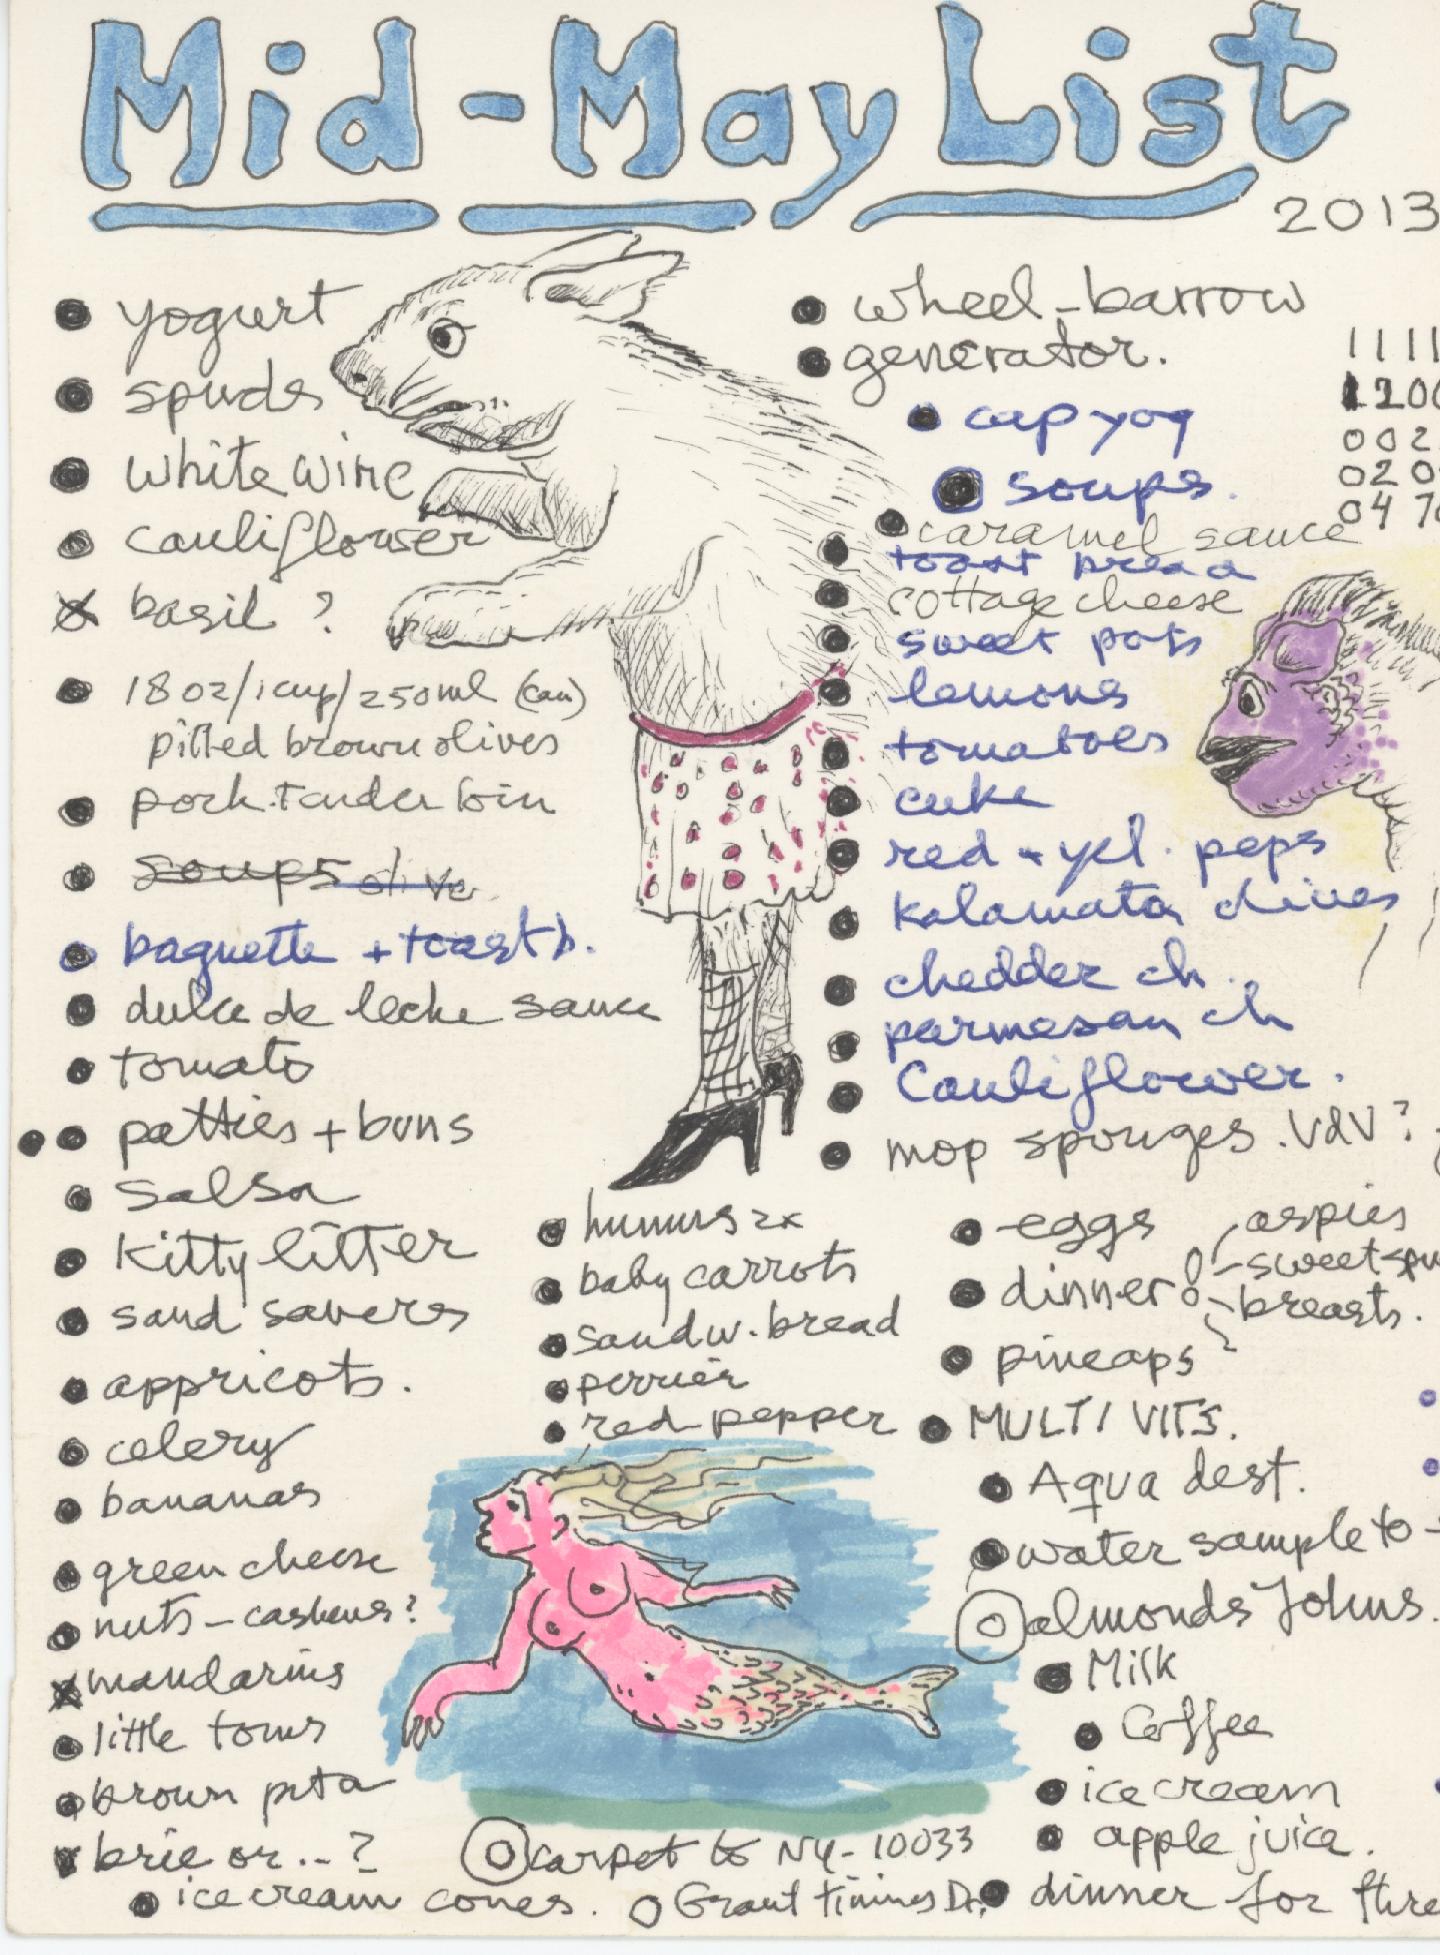 Mid-May List
2013
yogurt
spuds
white wine
cauliflower
basil ?
18 oz/1cup/250ml (can)
pitted brown olives
pork tenderloin
soups olive
baguette + toast b.
dulce de leche sauce
tomato
patties + buns
salsa
Kitty litter
sand savers
appricots.
celery
bananas
green cheese
nuts - cashews?
mandarins
little toms
brown pita
brie or...?
ice cream cones.
wheel-barrow
generator.
cap yog
soups.
caramel sauce
toast bread
cottage cheese
sweet pots
lemons
tomatoes
cuke
red + yel. peps
kalamata olives
chedder ch.
parmesan ch
Cauliflower.
mop sponges. VdV?
1111
1200
002
020
047
humus 2x
baby carrots
sandw. bread
perrier
red pepper
eggs
dinner
aspies
sweet-spu
breasts.
pineaps
MULTI VITS.
Aqua dest.
water sample to -
almonds Johns.
Milk
Coffee
ice cream
apple juice.
carpet to NY- 10033
Grant Dr.
dinner for thre